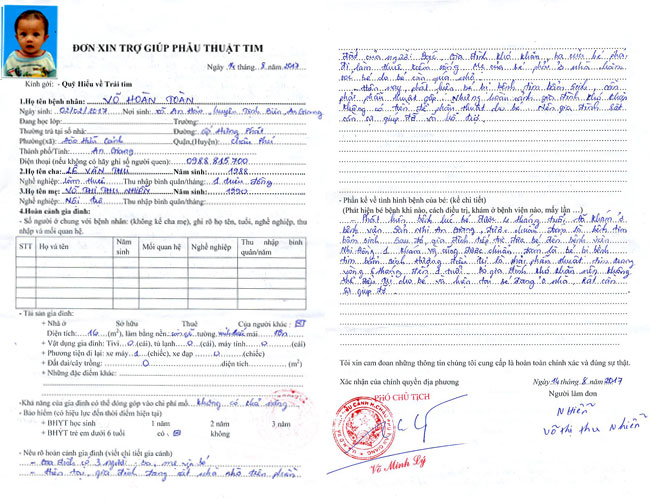 ĐƠN XIN TRỢ GIÚP PHẪU THUẬT TIM
Ngày 14 tháng 8 /2017
Kính gởi: - Quỹ Hiểu về Trái tim
1.Họ tên bệnh nhân: VÕ HOÀN TOÀN
Ngày sinh: 02/02/2017 Nơi sinh: xã An Hảo, huyện Tịnh Biên An Giang
Đang học lớp: Trường:
Thường trú tại số nhà: Đường: ấp Hưng Phát
Phường(xã): Đào Hữu Cảnh Quận,(Huyện): Châu Phú
Thành phố/Tỉnh: An Giang
Điện thoại (nếu không có hãy ghi số người quen): 0988 815 700
2.Họ tên cha: LÊ VĂN THU Năm sinh: 1988
Nghề nghiệp: làm thuê Thu nhập bình quân/tháng: 1 triệu đồng
3.Họ tên mẹ: VÕ THỊ THU NHIÊN Năm sinh: 1990
Nghề nghiệp: Nội trợ Thu nhập bình quân/tháng:
4.Hoàn cảnh gia đình:
- Số người ở chung với bệnh nhân: (không kể cha mẹ), ghi rõ họ tên, tuổi, nghề nghiệp, thu nhập và mối quan hệ.
STT Họ và tên Năm sinh Mối quan hệ Nghề nghiệp Thu nhập bình quân/năm
- Tài sản gia đình:
+ Nhà ở Sở hữu Thuê Của người khác :
Diện tích: 16 (m²), làm bằng nền: tường mái tôn
+ Vật dụng gia đình: Tivi 0 (cái), tủ lạnh 0 (cái), máy tính 0 (cái)
+ Phương tiện đi lại: xe máy 1 (chiếc), xe đạp 0 (chiếc)
+ Đất đai/cây trồng: 0 diện tích (m²)
+ Những đặc điểm khác:
-Khả năng của gia đình có thể đóng góp vào chi phí mổ: không có khả năng
- Bảo hiểm (có hiệu lực đến thời điểm hiện tại)
+ BHYT học sinh 1 năm 2 năm 3 năm
+ BHYT trẻ em dưới 6 tuổi có không
- Nêu rõ hoàn cảnh gia đình (viết chi tiết gia cảnh)
- Gia đình có 3 người - ba, mẹ và bé
- Hiện tại, gia đình đang cất nhà nhờ trên phần
đất của người gia đình khó khăn, ba của bé phải
đi làm thuê kiếm sống. Mẹ của bé phải ở nhà chăm
sóc bé do bé còn quá nhỏ.
- Hôm nay phát hiện bé bị bệnh tim bẩm sinh cần
phải phẫu thuật gấp. Nhưng hoàn cảnh gia đình khó khăn
không có tiền để phẫu thuật cho bé. Nên gia đình rất
cần sự giúp đỡ và hỗ trợ.
- Phần kể về tình hình bệnh của bé: (kể chi tiết)
(Phát hiện bệnh khi nào, cách điều trị, khám ở bệnh viện nào, mấy lần ...)
- Phát hiện bệnh lúc bé được tháng tuổi, khám ở
bệnh viện Sản Nhi An Giang được chuẩn đoán là bệnh tim
bẩm sinh. Sau đó, gia đình tiếp tục đưa bé đến bệnh viện
Nhi Đồng 1 khám và cũng được chuẩn đoán là bé bị bệnh
tim bẩm sinh hướng điều trị là phải phẫu thuật tim trong
vòng 6 tháng đến 1 tuổi. Do gia đình khó khăn nên không
thể điều trị cho bé và hiện tại bé đang ở nhà. Rất cần
sự giúp đỡ.
Tôi xin cam đoan những thông tin chúng tôi cung cấp là hoàn toàn chính xác và đúng sự thật.
Xác nhận của chính quyền địa phương Ngày 14 tháng 8 năm 2017
PHÓ CHỦ TỊCH Người làm đơn
Nhiên
Võ Minh Lý Võ thị thu Nhiên